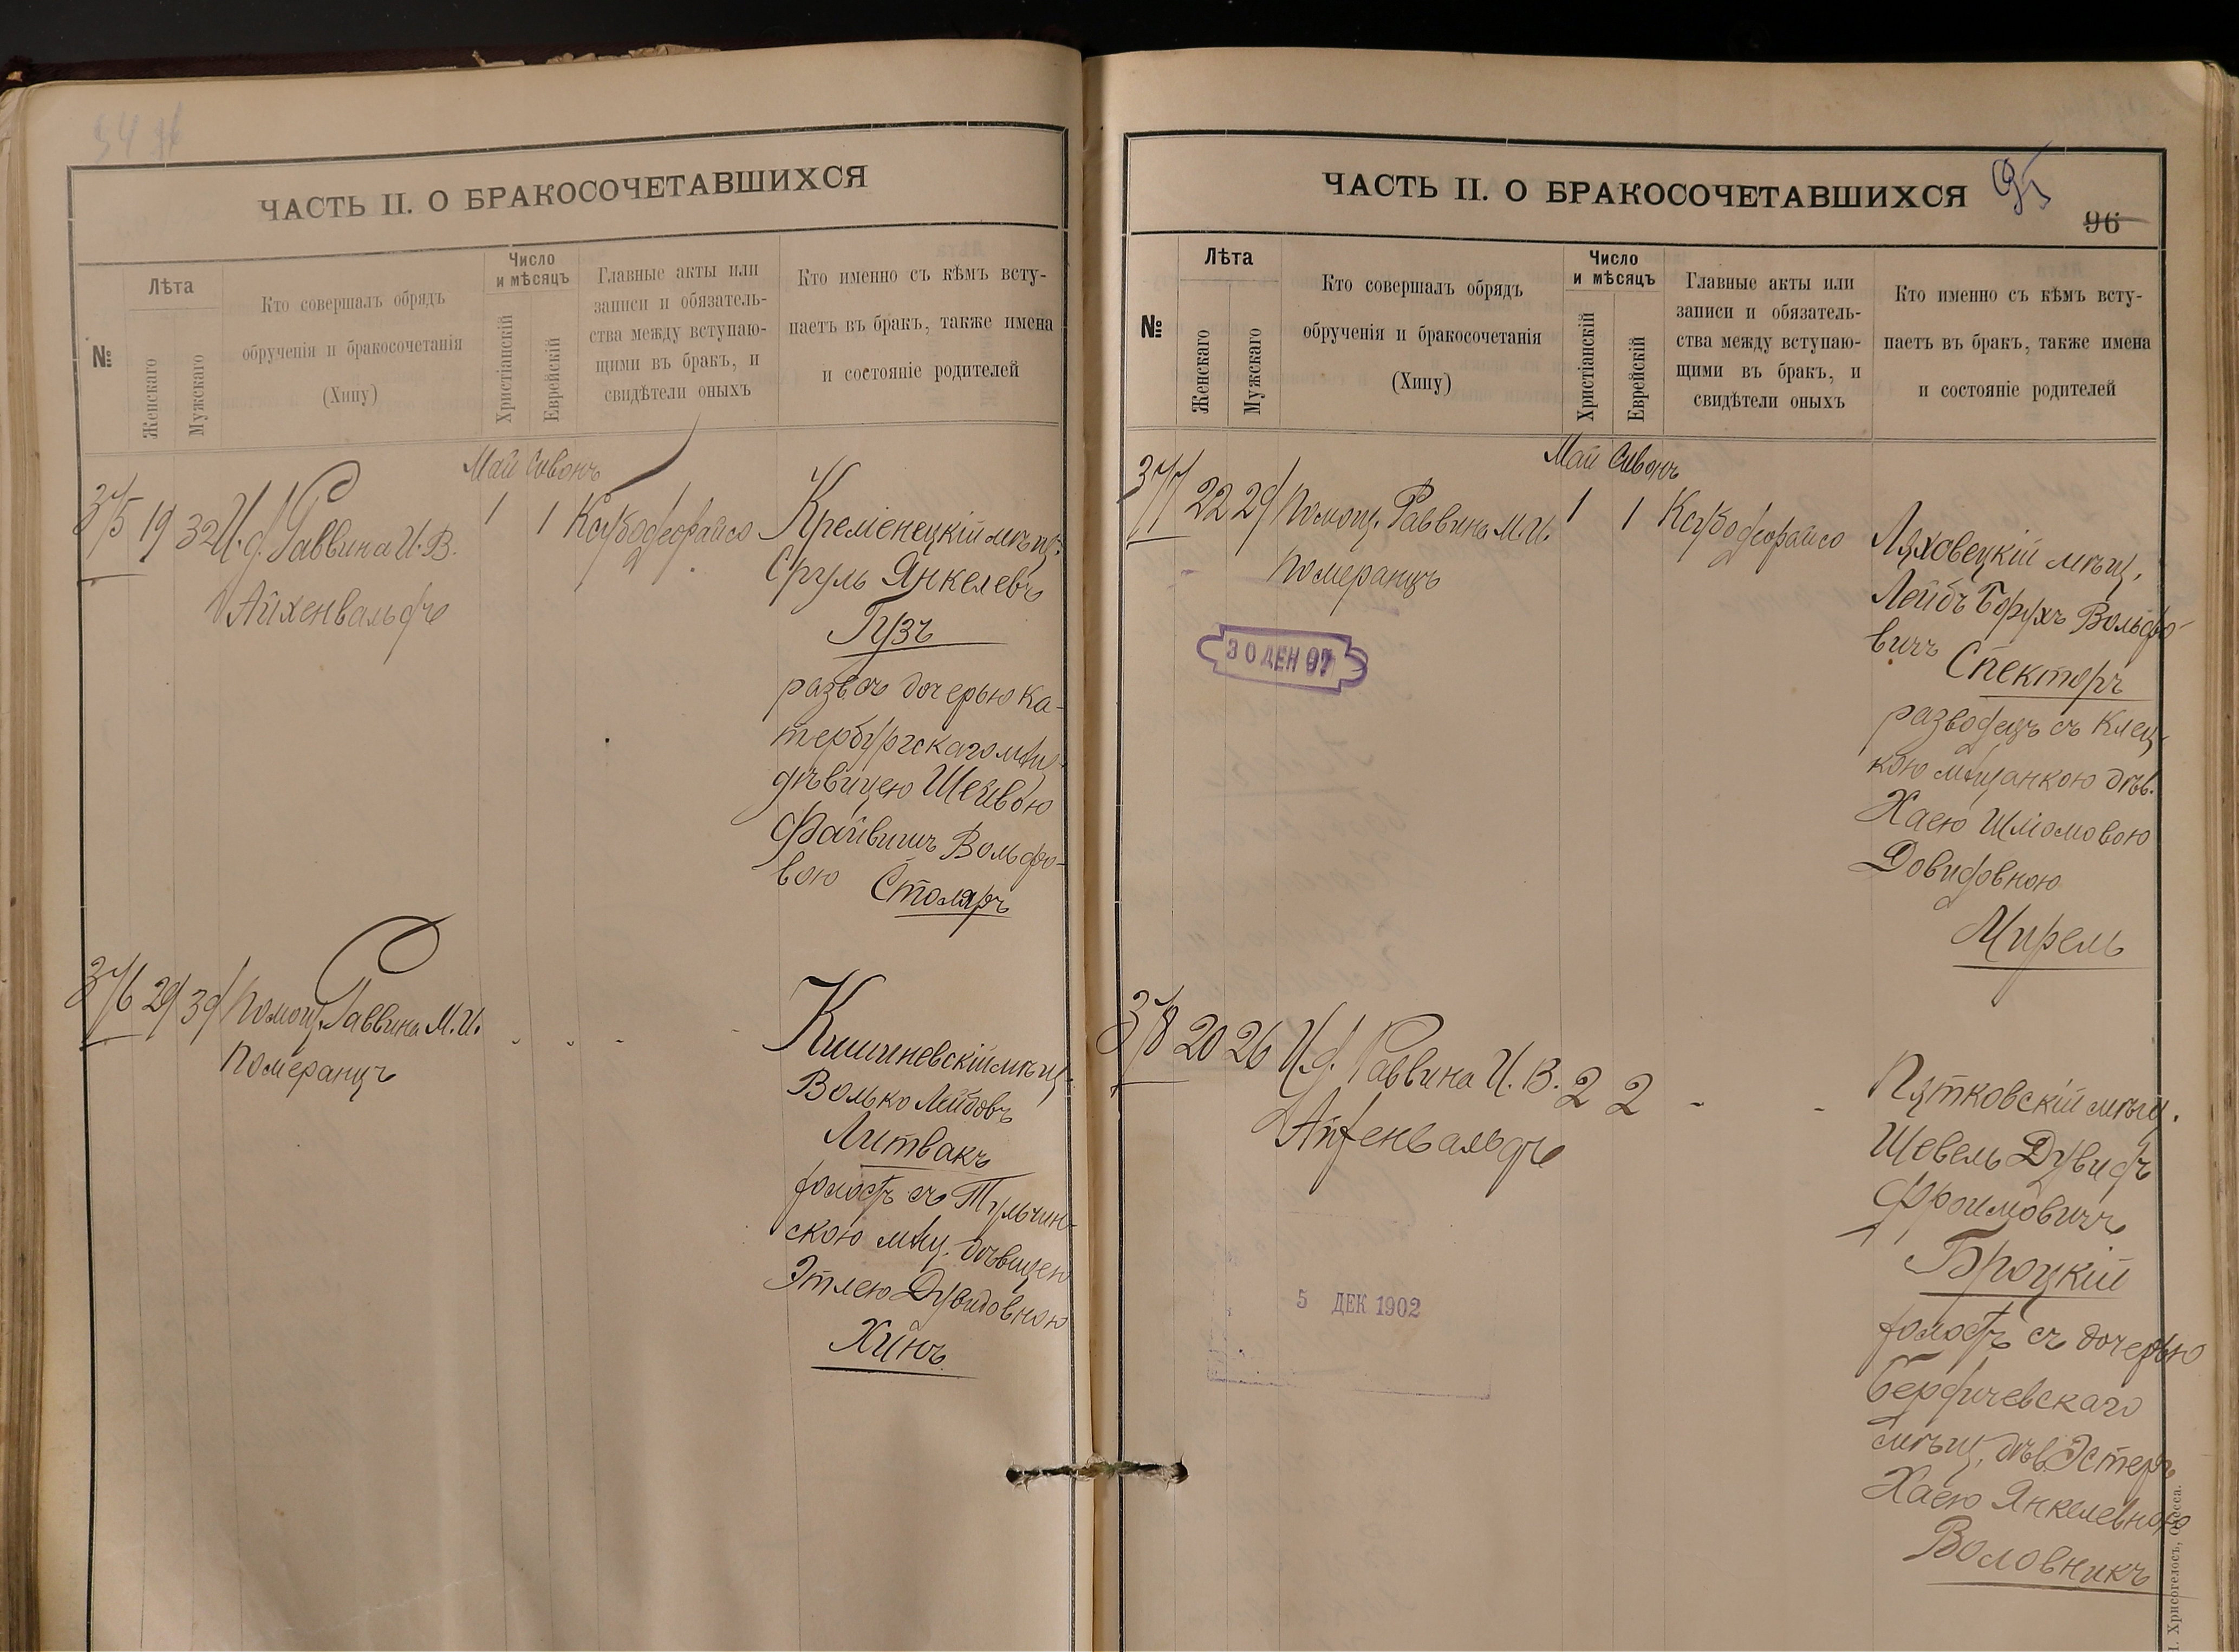 ЧАСТЬ II. О БРАКОСОЧЕТАВШИХСЯ
№
Лѣта
Женскаго
Мужскаго
Кто совершалъ обрядъ
обрученія и бракосочетанія
(Хипу)
Число
и мѣсяцъ
Христіанскій
Еврейскій
Главные акты или
записи и обязатель-
ства между вступаю-
щими въ бракъ, и
свидѣтели оныхъ
Кто именно съ кѣмъ всту-
паетъ въ бракъ, также имена
и состояніе родителей
Май Сивонъ
375 19 32 И. д. Раввина И. В. 1 1
Айхенвальдъ
Кременецкій мѣщ.
Сруль Янкелевъ
Гузъ
развод. съ дочерью Ка-
тербургскаго мѣщ.
дѣвицею Шейвою
Файвишъ Вольфо-
вою Столяръ
376 29 39 Помощ. Раввина М. И.
Померанцъ
Кишиневскій мѣщ.
Волько Лейбовъ
Литвакъ
холостъ съ Тульчин-
скою мѣщ. дѣвицею
Этлею Дувидовною
Хинъ
ЧАСТЬ II. О БРАКОСОЧЕТАВШИХСЯ
95
96
№
Лѣта
Женскаго
Мужскаго
Кто совершалъ обрядъ
обрученія и бракосочетанія
(Хипу)
Число
и мѣсяцъ
Христіанскій
Еврейскій
Главные акты или
записи и обязатель-
ства между вступаю-
щими въ бракъ, и
свидѣтели оныхъ
Кто именно съ кѣмъ всту-
паетъ въ бракъ, также имена
и состояніе родителей
Май Сивонъ
377 22 29 Помощ. Раввина М. И. 1 1
Померанцъ
30 ДЕК 97
Ляховецкій мѣщ.
Лейбъ Борухъ Вольфо-
вичъ Спекторъ
разводецъ съ Клец-
кою мѣщанкою дѣв.
Хаею Шліомовою
Довидовною
Мирель
378 20 26 И. д. Раввина И. В. 2 2
Айхенвальдъ
5 ДЕК 1902
Пятковскій мѣщ.
Шевель Дувидъ
Фроимовичъ
Броцкій
холостъ съ дочерью
Бердичевскаго
мѣщ. дѣв. Эстеръ
Хаею Янкелевною
Воловникъ
Хрисогелосъ, Одесса.